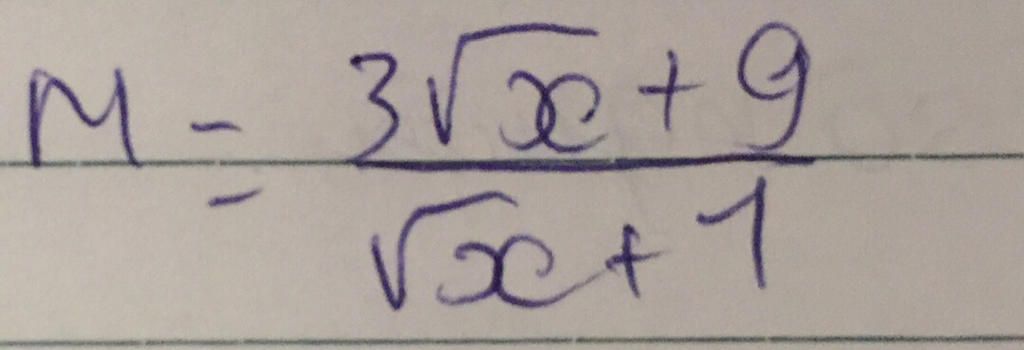 M = (3√x + 9) / (√x + 1)